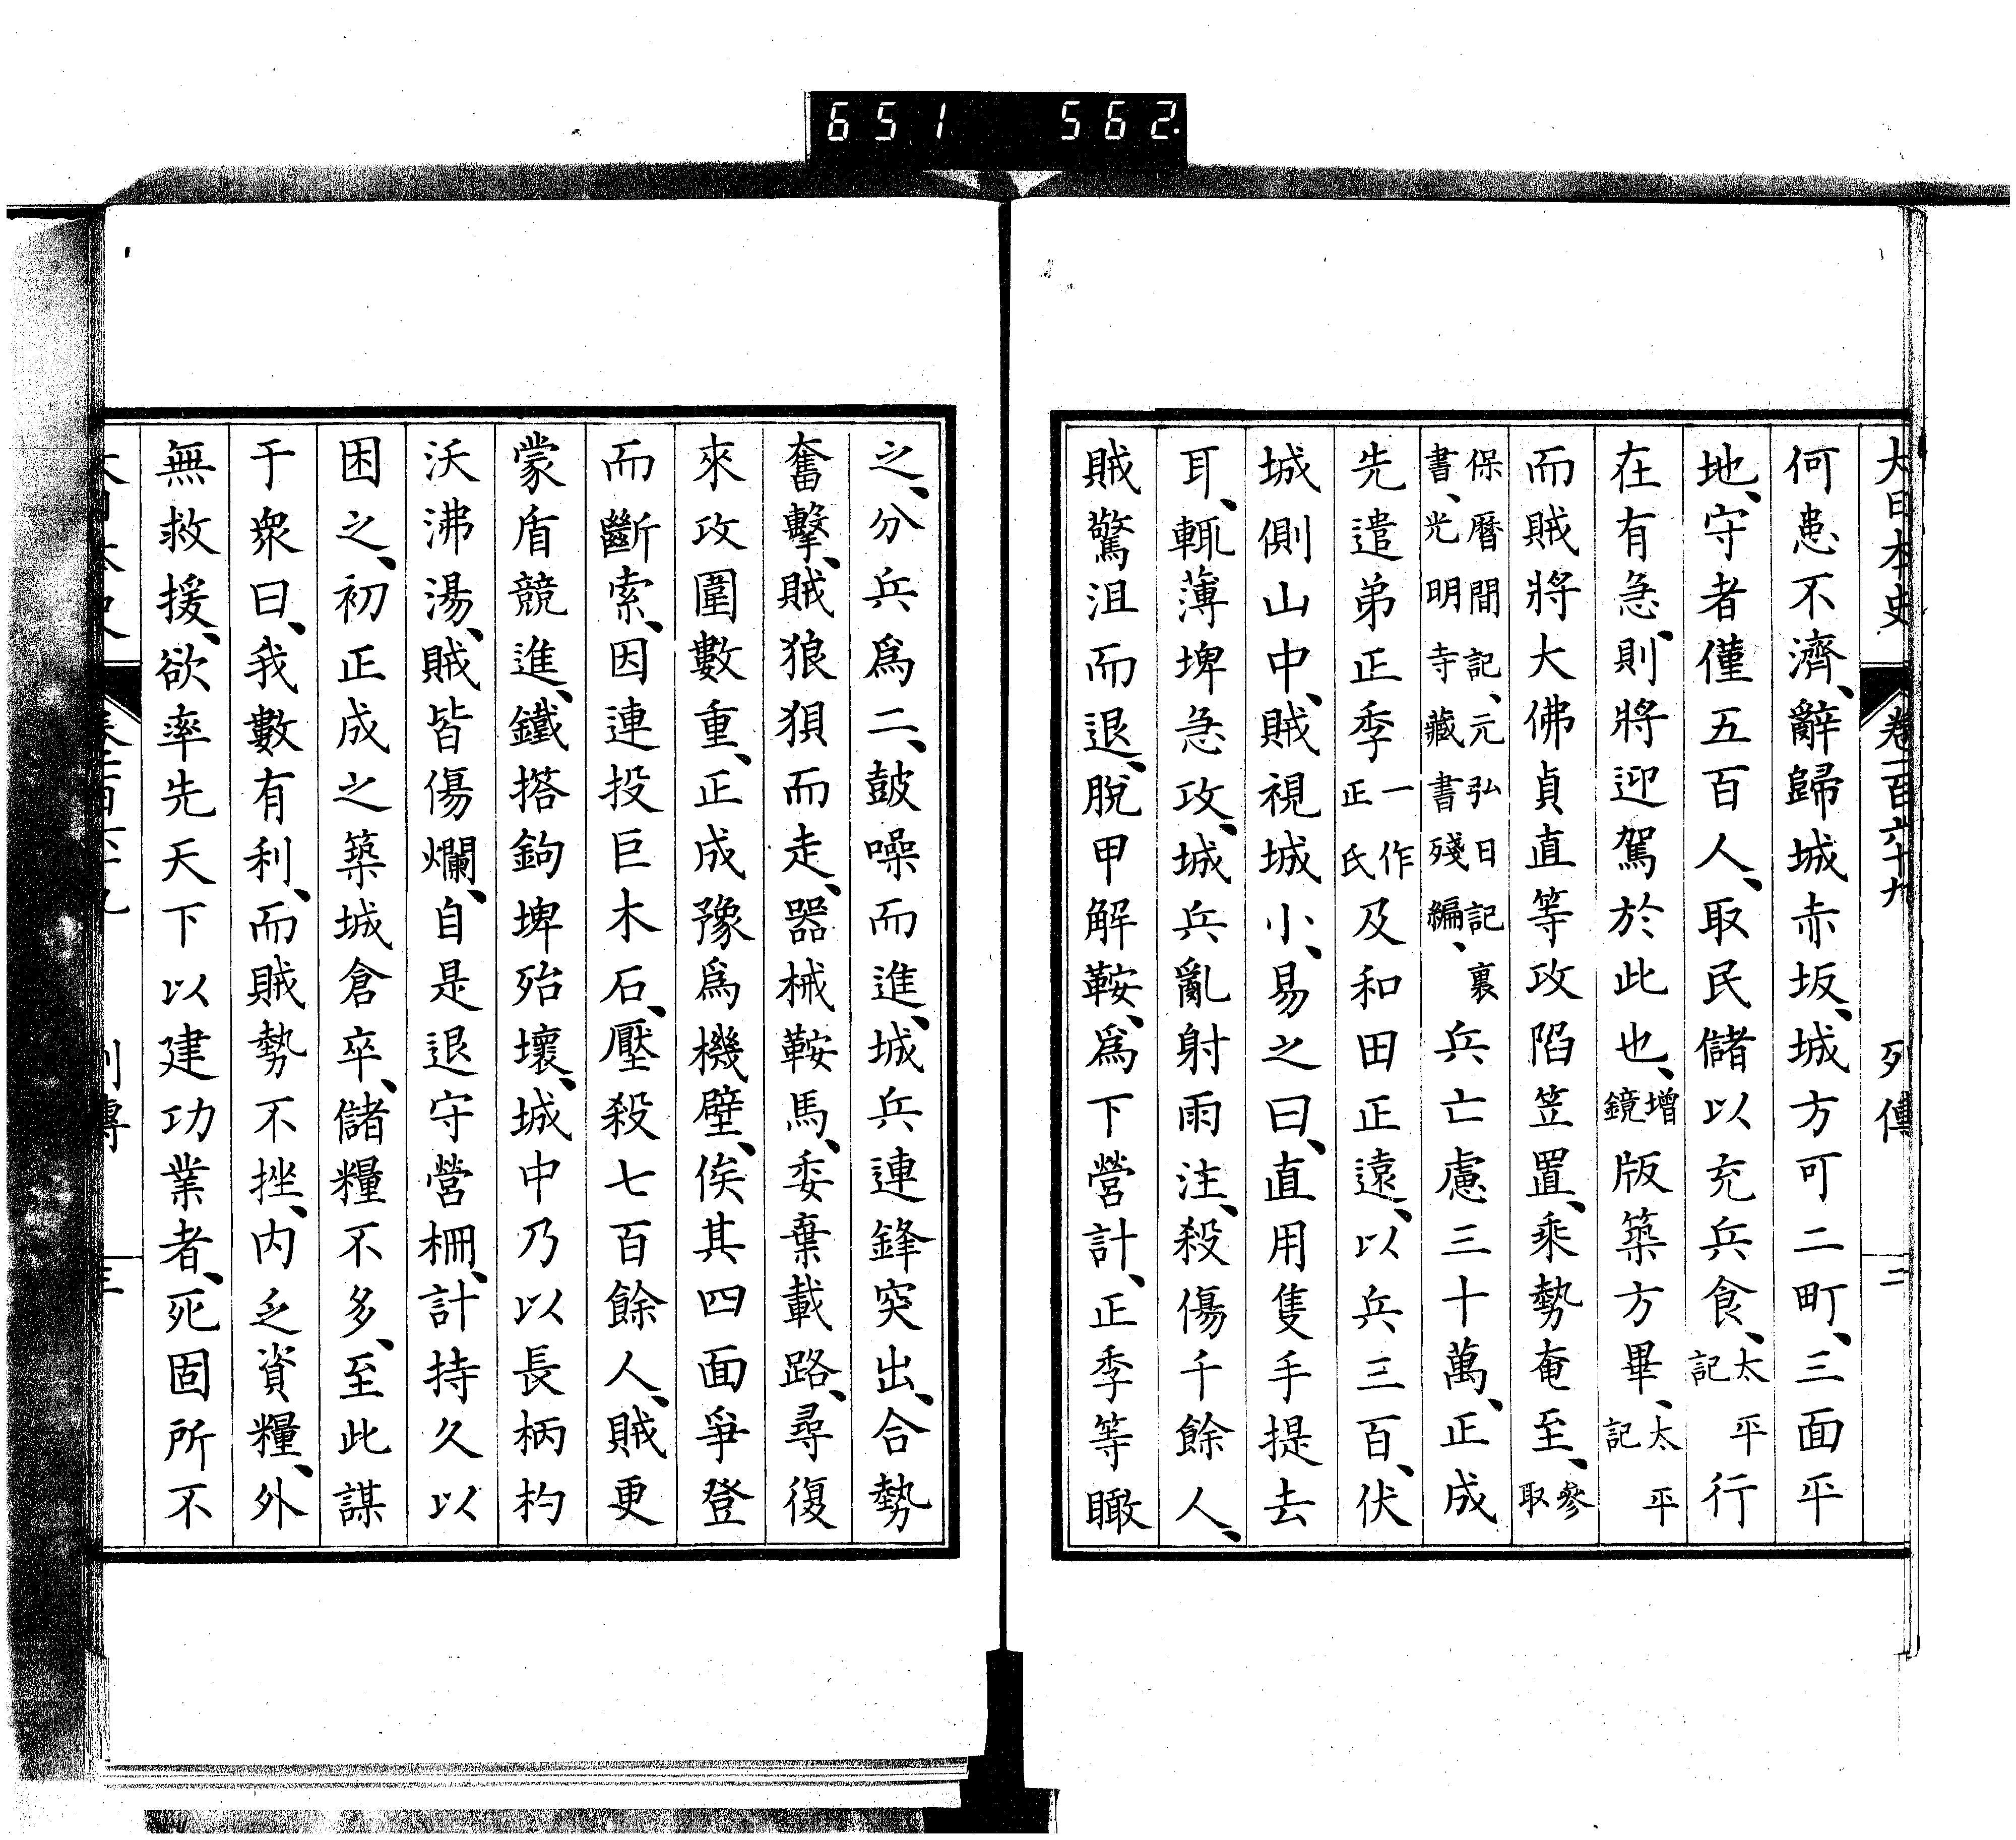 651 562
大日本史 卷一百六十九 列傳 二
何患不濟、辭歸城赤坂、城方可二町、三面平
地、守者僅五百人、取民儲以充兵食、太平記行
在有急、則將迎駕於此也、增鏡版築方畢、太平記
而賊將大佛貞直等攻陷笠置、乘勢奄至、參取
保曆間記、元弘日記裏書、光明寺藏書殘編、兵亡慮三十萬、正成
先遣弟正季一作正氏及和田正遠、以兵三百、伏
城側山中、賊視城城小、易之曰、直用隻手提去
耳、輒薄埤急攻、城兵亂射雨注、殺傷千餘人、
賊驚沮而退、脫甲解鞍、爲下營計、正季等瞰
之、分兵爲二、鼓噪而進、城兵連鋒突出、合勢
奮擊、賊狼狽而走、器械鞍馬、委棄載路、尋復
來攻圍數重、正成豫爲機壁、俟其四面爭登
而斷索、因連投巨木石、壓殺七百餘人、賊更
蒙盾競進、鐵搭鉤埤殆壞、城中乃以長柄杓
沃沸湯、賊皆傷爛、自是退守營柵、計持久以
困之、初正成之築城倉卒、儲糧不多、至此謀
于衆曰、我數有利、而賊勢不挫、内乏資糧、外
無救援、欲率先天下以建功業者、死固所不